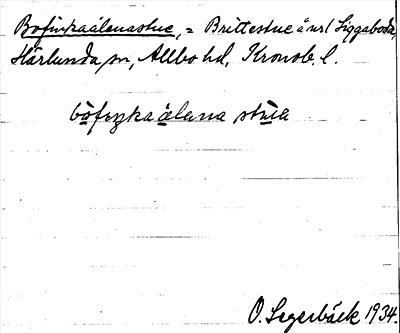 Bofinkaålenastue, = Brittestue å nrl Siggaboda,
Härlunda sn, Allbo hd, Kronob. l.
bofiŋkaålana stua
O. Segerbäck 1934.